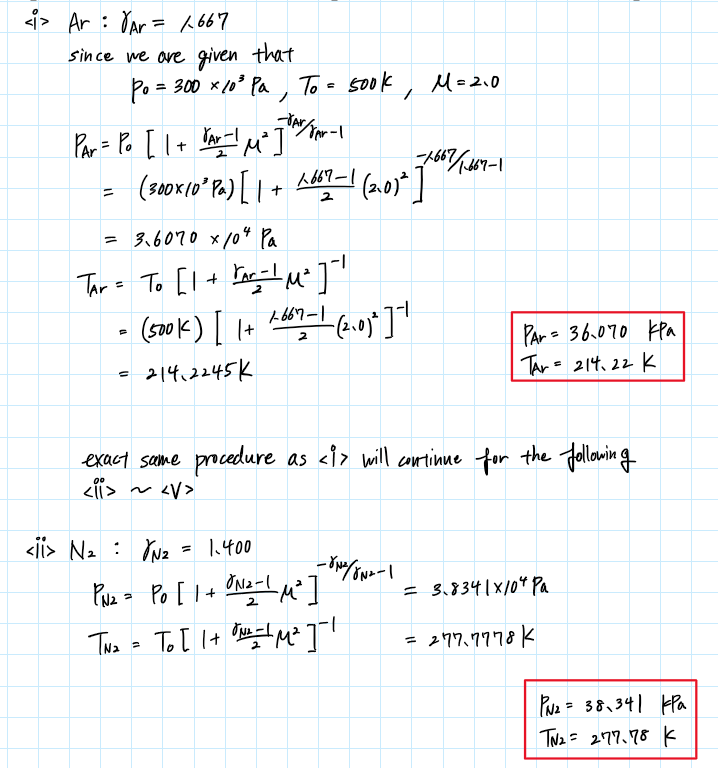 <i> Ar : γAr = 1.667
since we are given that
P₀ = 300 × 10³ Pa , T₀ = 500K , M = 2.0
PAr = P₀ [ 1 + (γAr-1)/2 M² ]^(-γAr/γAr-1)
= (300×10³ Pa) [ 1 + (1.667-1)/2 (2.0)² ]^(-1.667/1.667-1)
= 3.6070 × 10⁴ Pa
TAr = T₀ [ 1 + (γAr-1)/2 M² ]^-1
= (500K) [ 1 + (1.667-1)/2 (2.0)² ]^-1
= 214.2245K
PAr = 36.070 kPa
TAr = 214.22 K
exact same procedure as <i> will continue for the following
<ii> ~ <V>
<ii> N₂ : γN2 = 1.400
PN2 = P₀ [ 1 + (γN2-1)/2 M² ]^(-γN2/γN2-1) = 3.8341×10⁴ Pa
TN2 = T₀ [ 1 + (γN2-1)/2 M² ]^-1 = 277.7778K
PN2 = 38.341 kPa
TN2 = 277.78 K